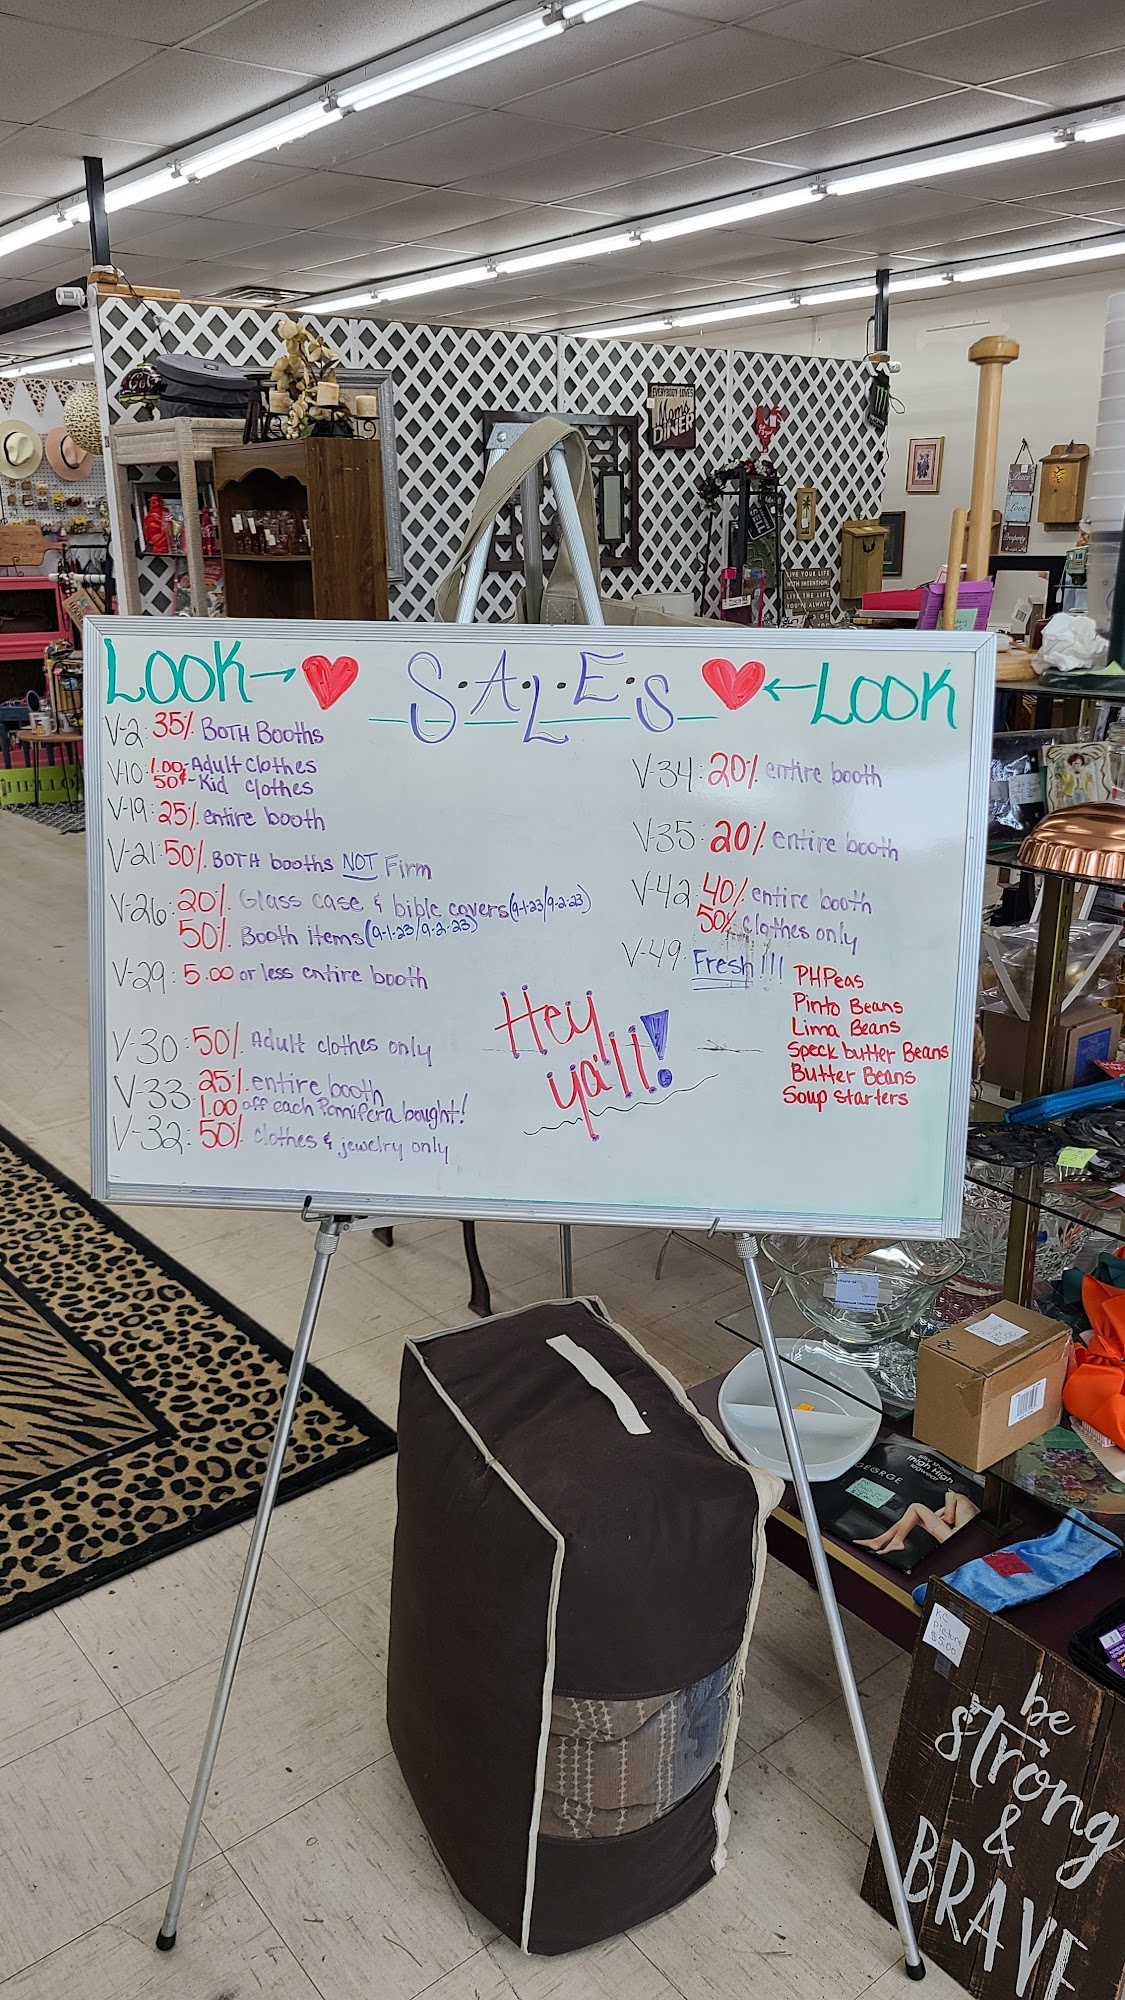 EVERYBODY LOVES
Mom's
DINER
Peace
Love
LIVE YOUR LIFE
WITH INTENTION.
LIVE THE LIFE
YOU'VE ALWAYS
HELLO
LOOK → S.A.L.E.S ← LOOK
V-2: 35% BOTH Booths
V-10: 1.00-Adult clothes
50¢-Kid clothes
V-19: 25% entire booth
V-21: 50% BOTH booths NOT Firm
V-26: 20% Glass case & bible covers (9-1-23/9-2-23)
50% Booth items (9-1-23/9-2-23)
V-29: 5.00 or less entire booth
V-30: 50% Adult clothes only
V-33: 25% entire booth
1.00 off each Pomifera bought!
V-32: 50% clothes & jewelry only
V-34: 20% entire booth
V-35: 20% entire booth
V-42: 40% entire booth
50% clothes only
V-49: Fresh!!! PHPeas
Pinto Beans
Lima Beans
Speck butter Beans
Butter Beans
Soup starters
Hey
ya'll!
GEORGE
Thigh High
KC
Picture
$5.00
be
strong
&
BRAVE